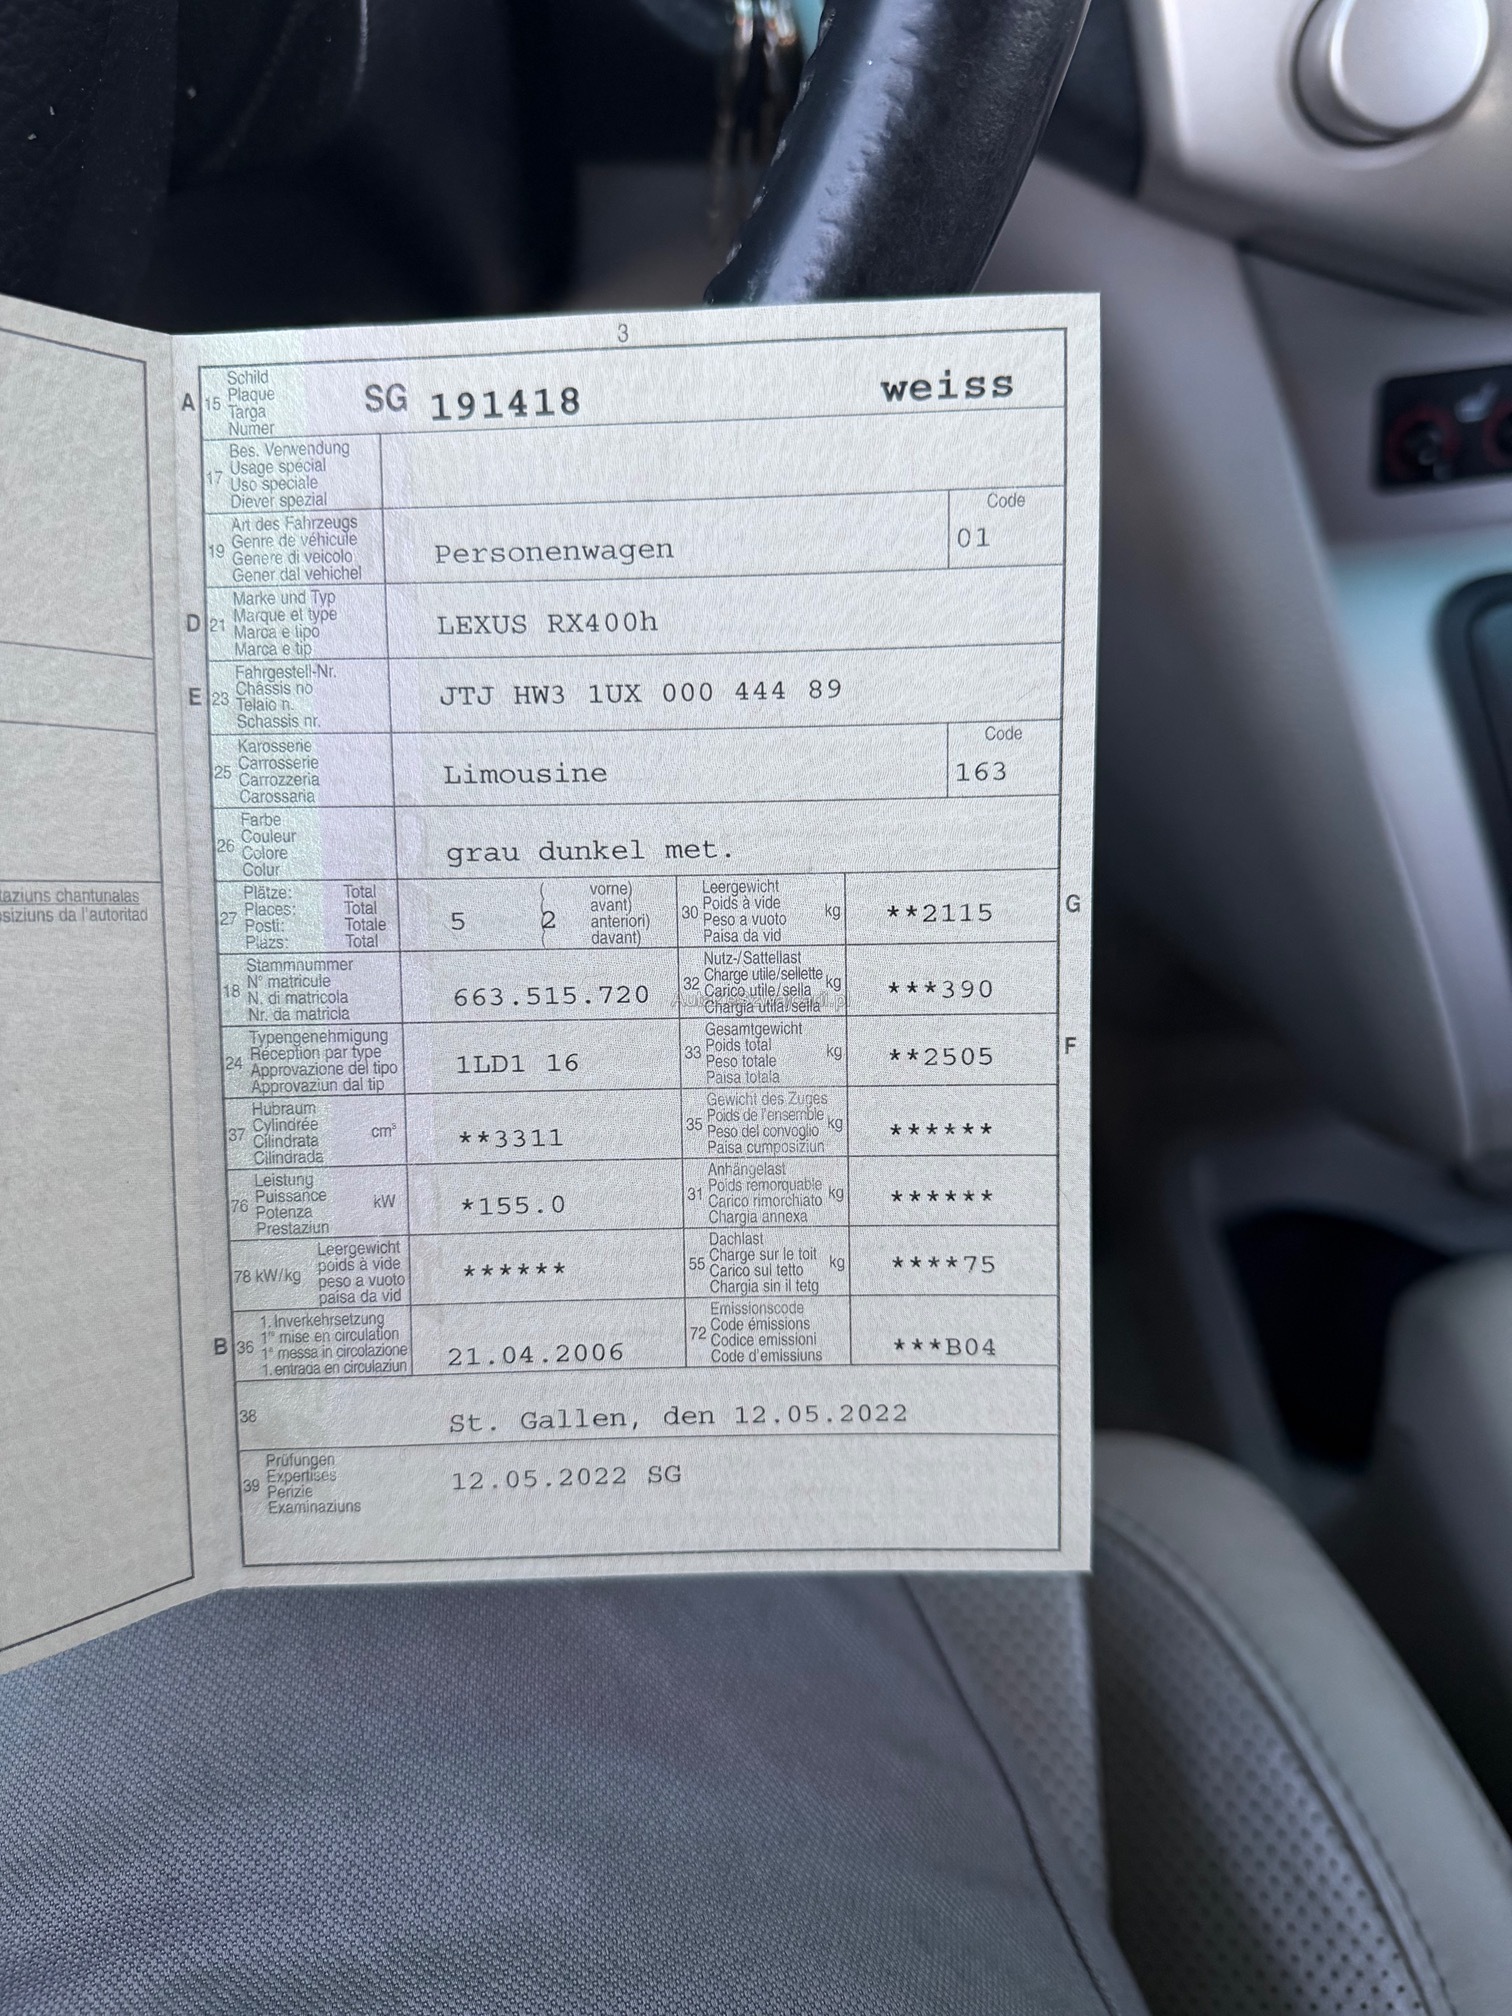 3
A 15 Schild
Plaque
Targa
Numer
SG 191418 weiss
17 Bes. Verwendung
Usage spécial
Uso speciale
Diever spezial
19 Art des Fahrzeugs
Genre de véhicule
Genere di veicolo
Gener dal vehichel
Personenwagen
Code
01
D 21 Marke und Typ
Marque et type
Marca e tipo
Marca e tip
LEXUS RX400h
E 23 Fahrgestell-Nr.
Châssis no
Telaio n.
Schassis nr.
JTJ HW3 1UX 000 444 89
25 Karosserie
Carrosserie
Carrozzeria
Carossaria
Limousine
Code
163
26 Farbe
Couleur
Colore
Colur
grau dunkel met.
27 Plätze: Total
Places: Total
Posti: Totale
Plazs: Total
5 ( 2 vorne)
avant)
anteriori)
davant)
30 Leergewicht
Poids à vide
Peso a vuoto
Paisa da vid
kg **2115 G
taziuns chantunalas
osiziuns da l'autoritad
18 Stammnummer
N° matricule
N. di matricola
Nr. da matricla
663.515.720
32 Nutz-/Sattellast
Charge utile/sellette
Carico utile/sella
Chargia utila/sella
kg ***390
24 Typengenehmigung
Réception par type
Approvazione del tipo
Approvaziun dal tip
1LD1 16
33 Gesamtgewicht
Poids total
Peso totale
Paisa totala
kg **2505 F
37 Hubraum
Cylindrée
Cilindrata
Cilindrada
cm³ **3311
35 Gewicht des Zuges
Poids de l'ensemble
Peso del convoglio
Paisa cumposiziun
kg ******
76 Leistung
Puissance
Potenza
Prestaziun
kW *155.0
31 Anhängelast
Poids remorquable
Carico rimorchiato
Chargia annexa
kg ******
78 kW/kg Leergewicht
poids à vide
peso a vuoto
paisa da vid
******
55 Dachlast
Charge sur le toit
Carico sul tetto
Chargia sin il tetg
kg ****75
B 36 1. Inverkehrsetzung
1re mise en circulation
1a messa in circolazione
1. entrada en circulaziun
21.04.2006
72 Emissionscode
Code émissions
Codice emissioni
Code d'emissiuns
***B04
38 St. Gallen, den 12.05.2022
39 Prüfungen
Expertises
Perizie
Examinaziuns
12.05.2022 SG